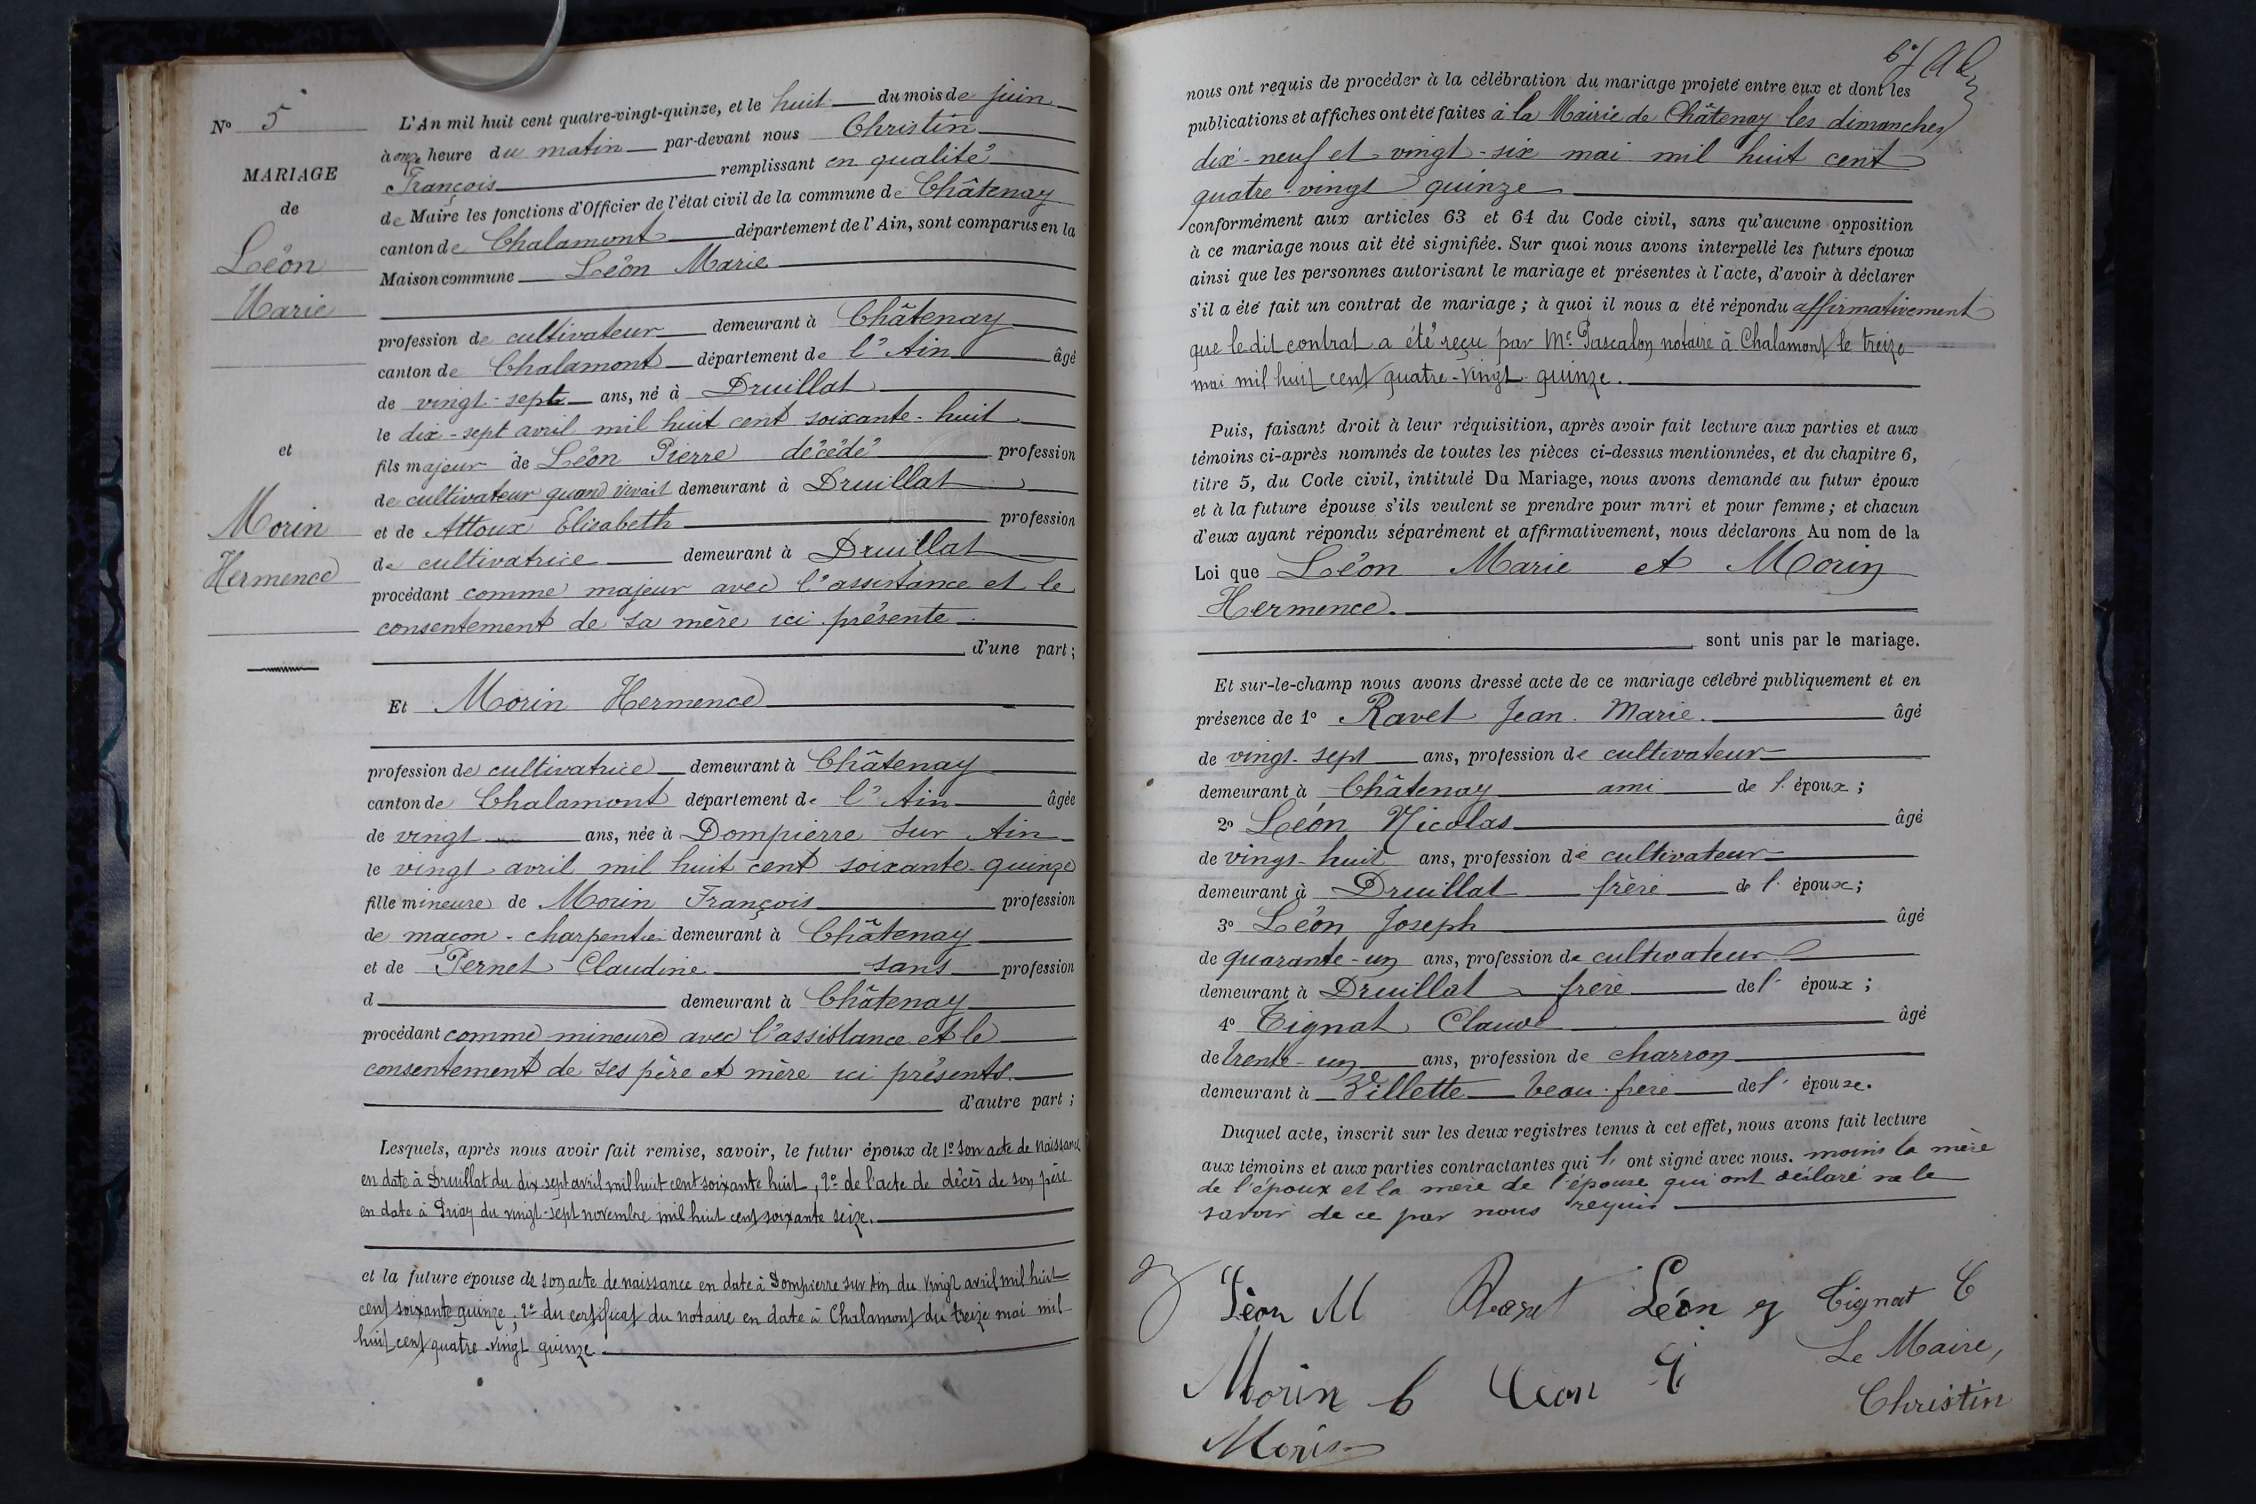 N° 5
MARIAGE
de
Léon
Marie
et
Morin
Hermence
L'An mil huit cent quatre-vingt-quinze, et le huit du mois de juin
à onze heure du matin par-devant nous Christin
François remplissant en qualité
de Maire les fonctions d'Officier de l'état civil de la commune de Châtenay
canton de Chalamont département de l'Ain, sont comparus en la
Maison commune Léon Marie
profession de cultivateur demeurant à Châtenay
canton de Chalamont département de l'Ain âgé
de vingt-sept ans, né à Druillat
le dix-sept avril mil huit cent soixante-huit
fils majeur de Léon Pierre décédé profession
de cultivateur quand vivait demeurant à Druillat
et de Attoux Elisabeth profession
de cultivatrice demeurant à Druillat
procédant comme majeur avec l'assistance et le
consentement de sa mère ici présente
d'une part ;
Et Morin Hermence
profession de cultivatrice demeurant à Châtenay
canton de Chalamont département de l'Ain âgée
de vingt ans, née à Dompierre sur Ain
le vingt avril mil huit cent soixante-quinze
fille mineure de Morin François profession
de maçon-charpentier demeurant à Châtenay
et de Pernet Claudine sans profession
d demeurant à Châtenay
procédant comme mineure avec l'assistance et le
consentement de ses père et mère ici présents.
d'autre part ;
Lesquels, après nous avoir fait remise, savoir, le futur époux de 1° son acte de naissance
en date à Druillat du dix sept avril mil huit cent soixante huit, 2° de l'acte de décès de son père
en date à Priay du vingt-sept novembre mil huit cent soixante seize.
et la future épouse de son acte de naissance en date à Dompierre sur Ain du vingt avril mil huit
cent soixante quinze ; 2° du certificat du notaire en date à Chalamont du treize mai mil
huit cent quatre-vingt quinze.
nous ont requis de procéder à la célébration du mariage projeté entre eux et dont les
publications et affiches ont été faites à la Mairie de Châtenay les dimanches
dix-neuf et vingt-six mai mil huit cent
quatre-vingt quinze
conformément aux articles 63 et 64 du Code civil, sans qu'aucune opposition
à ce mariage nous ait été signifiée. Sur quoi nous avons interpellé les futurs époux
ainsi que les personnes autorisant le mariage et présentes à l'acte, d'avoir à déclarer
s'il a été fait un contrat de mariage ; à quoi il nous a été répondu affirmativement
que le dit contrat a été reçu par Me Pascalon notaire à Chalamont le treize
mai mil huit cent quatre-vingt quinze.
Puis, faisant droit à leur réquisition, après avoir fait lecture aux parties et aux
témoins ci-après nommés de toutes les pièces ci-dessus mentionnées, et du chapitre 6,
titre 5, du Code civil, intitulé Du Mariage, nous avons demandé au futur époux
et à la future épouse s'ils veulent se prendre pour mari et pour femme ; et chacun
d'eux ayant répondu séparément et affirmativement, nous déclarons Au nom de la
Loi que Léon Marie et Morin
Hermence.
sont unis par le mariage.
Et sur-le-champ nous avons dressé acte de ce mariage célébré publiquement et en
présence de 1° Ravet Jean-Marie âgé
de vingt-sept ans, profession de cultivateur
demeurant à Châtenay ami de l'époux ;
2° Léon Nicolas âgé
de vingt-huit ans, profession de cultivateur
demeurant à Druillat frère de l'époux ;
3° Léon Joseph âgé
de quarante-un ans, profession de cultivateur
demeurant à Druillat frère de l'époux ;
4° Tignat Claude âgé
de trente-un ans, profession de charron
demeurant à Villette beau-frère de l'épouse.
Duquel acte, inscrit sur les deux registres tenus à cet effet, nous avons fait lecture
aux témoins et aux parties contractantes qui l'ont signé avec nous. moins la mère
de l'époux et la mère de l'épouse qui ont déclaré ne le
savoir de ce par nous requis
Léon M Ravet Léon Tignat C
Morin Léon Le Maire,
Morin Christin